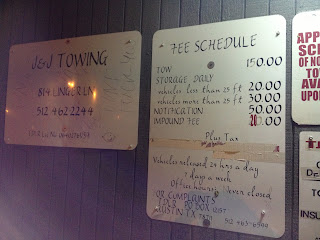 J&J TOWING
814 LINGER LN
512 462 2244
FEE SCHEDULE
TOW 150.00
STORAGE DAILY
vehicles less than 25 ft 20.00
vehicles more than 25 ft 50.00
NOTIFICATION 50.00
IMPOUND FEE 20.00
Plus Tax
Vehicles released 24 hrs a day
7 days a week
Office hours: Never closed
OR COMPLAINTS
T.D.L.R. PO BOX 12157
AUSTIN TX 78711
512 463-6599
APP
SCH
OF NO
TOV
AVA
UPO
INSU